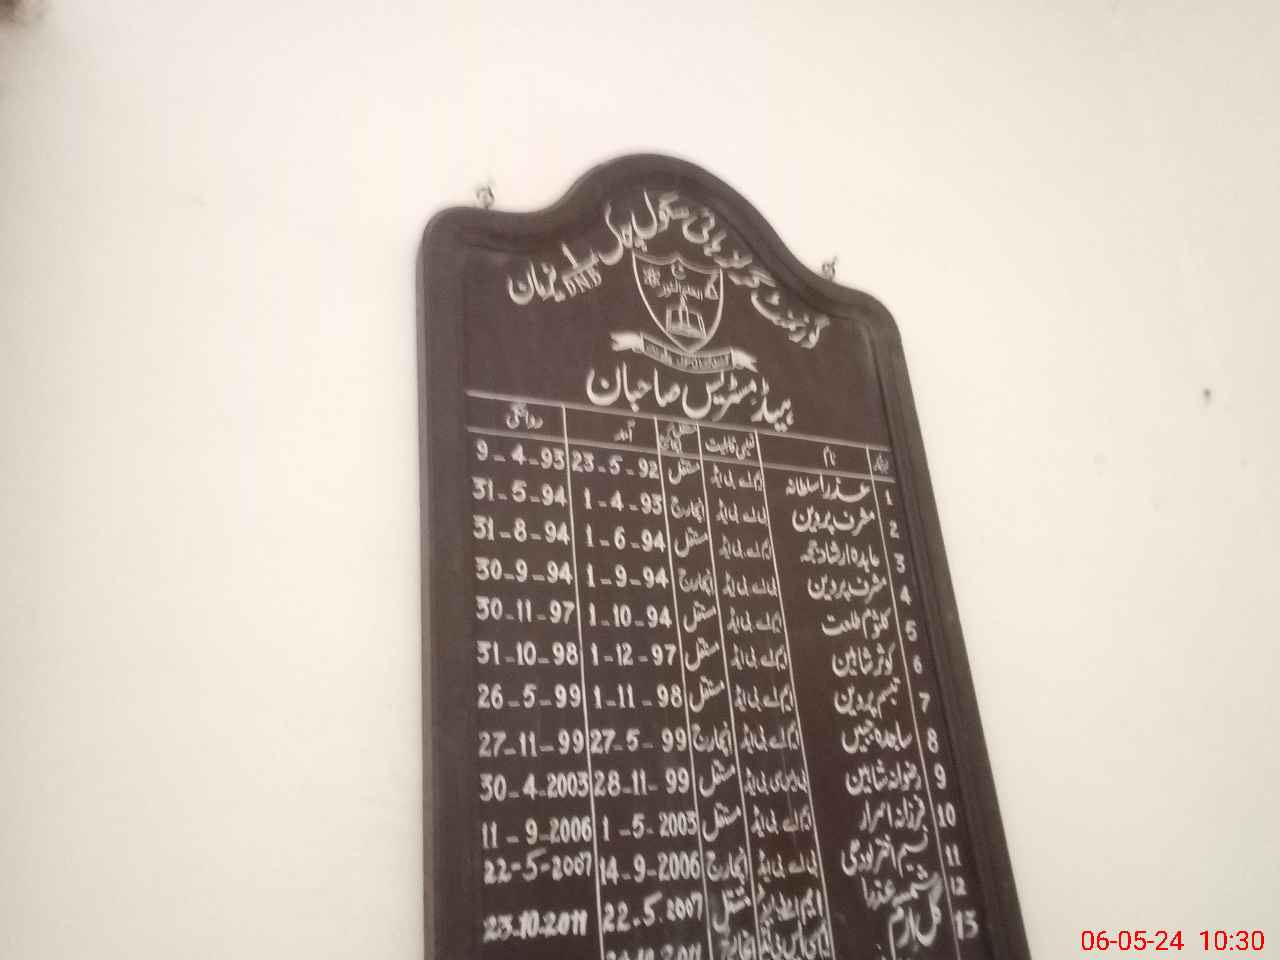 گورنمنٹ گرلز ہائی سکول چک 1 DNB یزمان
ہیڈ مسٹریس صاحبان
نام تعلیمی قابلیت آمد روانگی
1 عذرا سلطانہ ایم اے بی ایڈ مستقل 23-5-92 9-4-93
2 مشرف پروین بی اے بی ایڈ انچارج 1-4-93 31-5-94
3 عابدہ ارشاد نجمہ ایم اے بی ایڈ مستقل 1-6-94 31-8-94
4 مشرف پروین بی اے بی ایڈ انچارج 1-9-94 30-9-94
5 کلثوم طلعت ایم اے بی ایڈ مستقل 1-10-94 30-11-97
6 کوثر شاہین ایم اے بی ایڈ مستقل 1-12-97 31-10-98
7 تبسم پروین ایم اے بی ایڈ مستقل 1-11-98 26-5-99
8 ساجدہ جبیں ایم اے بی ایڈ انچارج 27-5-99 27-11-99
9 رضوانہ شاہین بی ایس سی بی ایڈ مستقل 28-11-99 30-4-2003
10 فرزانہ اسرار ایم اے بی ایڈ مستقل 1-5-2003 11-9-2006
11 نسیم اختر لودھی بی اے بی ایڈ انچارج 14-9-2006 22-5-2007
12 شمسہ عندلیب ایم اے بی ایڈ مستقل 22.5.2007 23.10.2011
13 گل ارم ایم ایس بی ایڈ انچارج
06-05-24 10:30